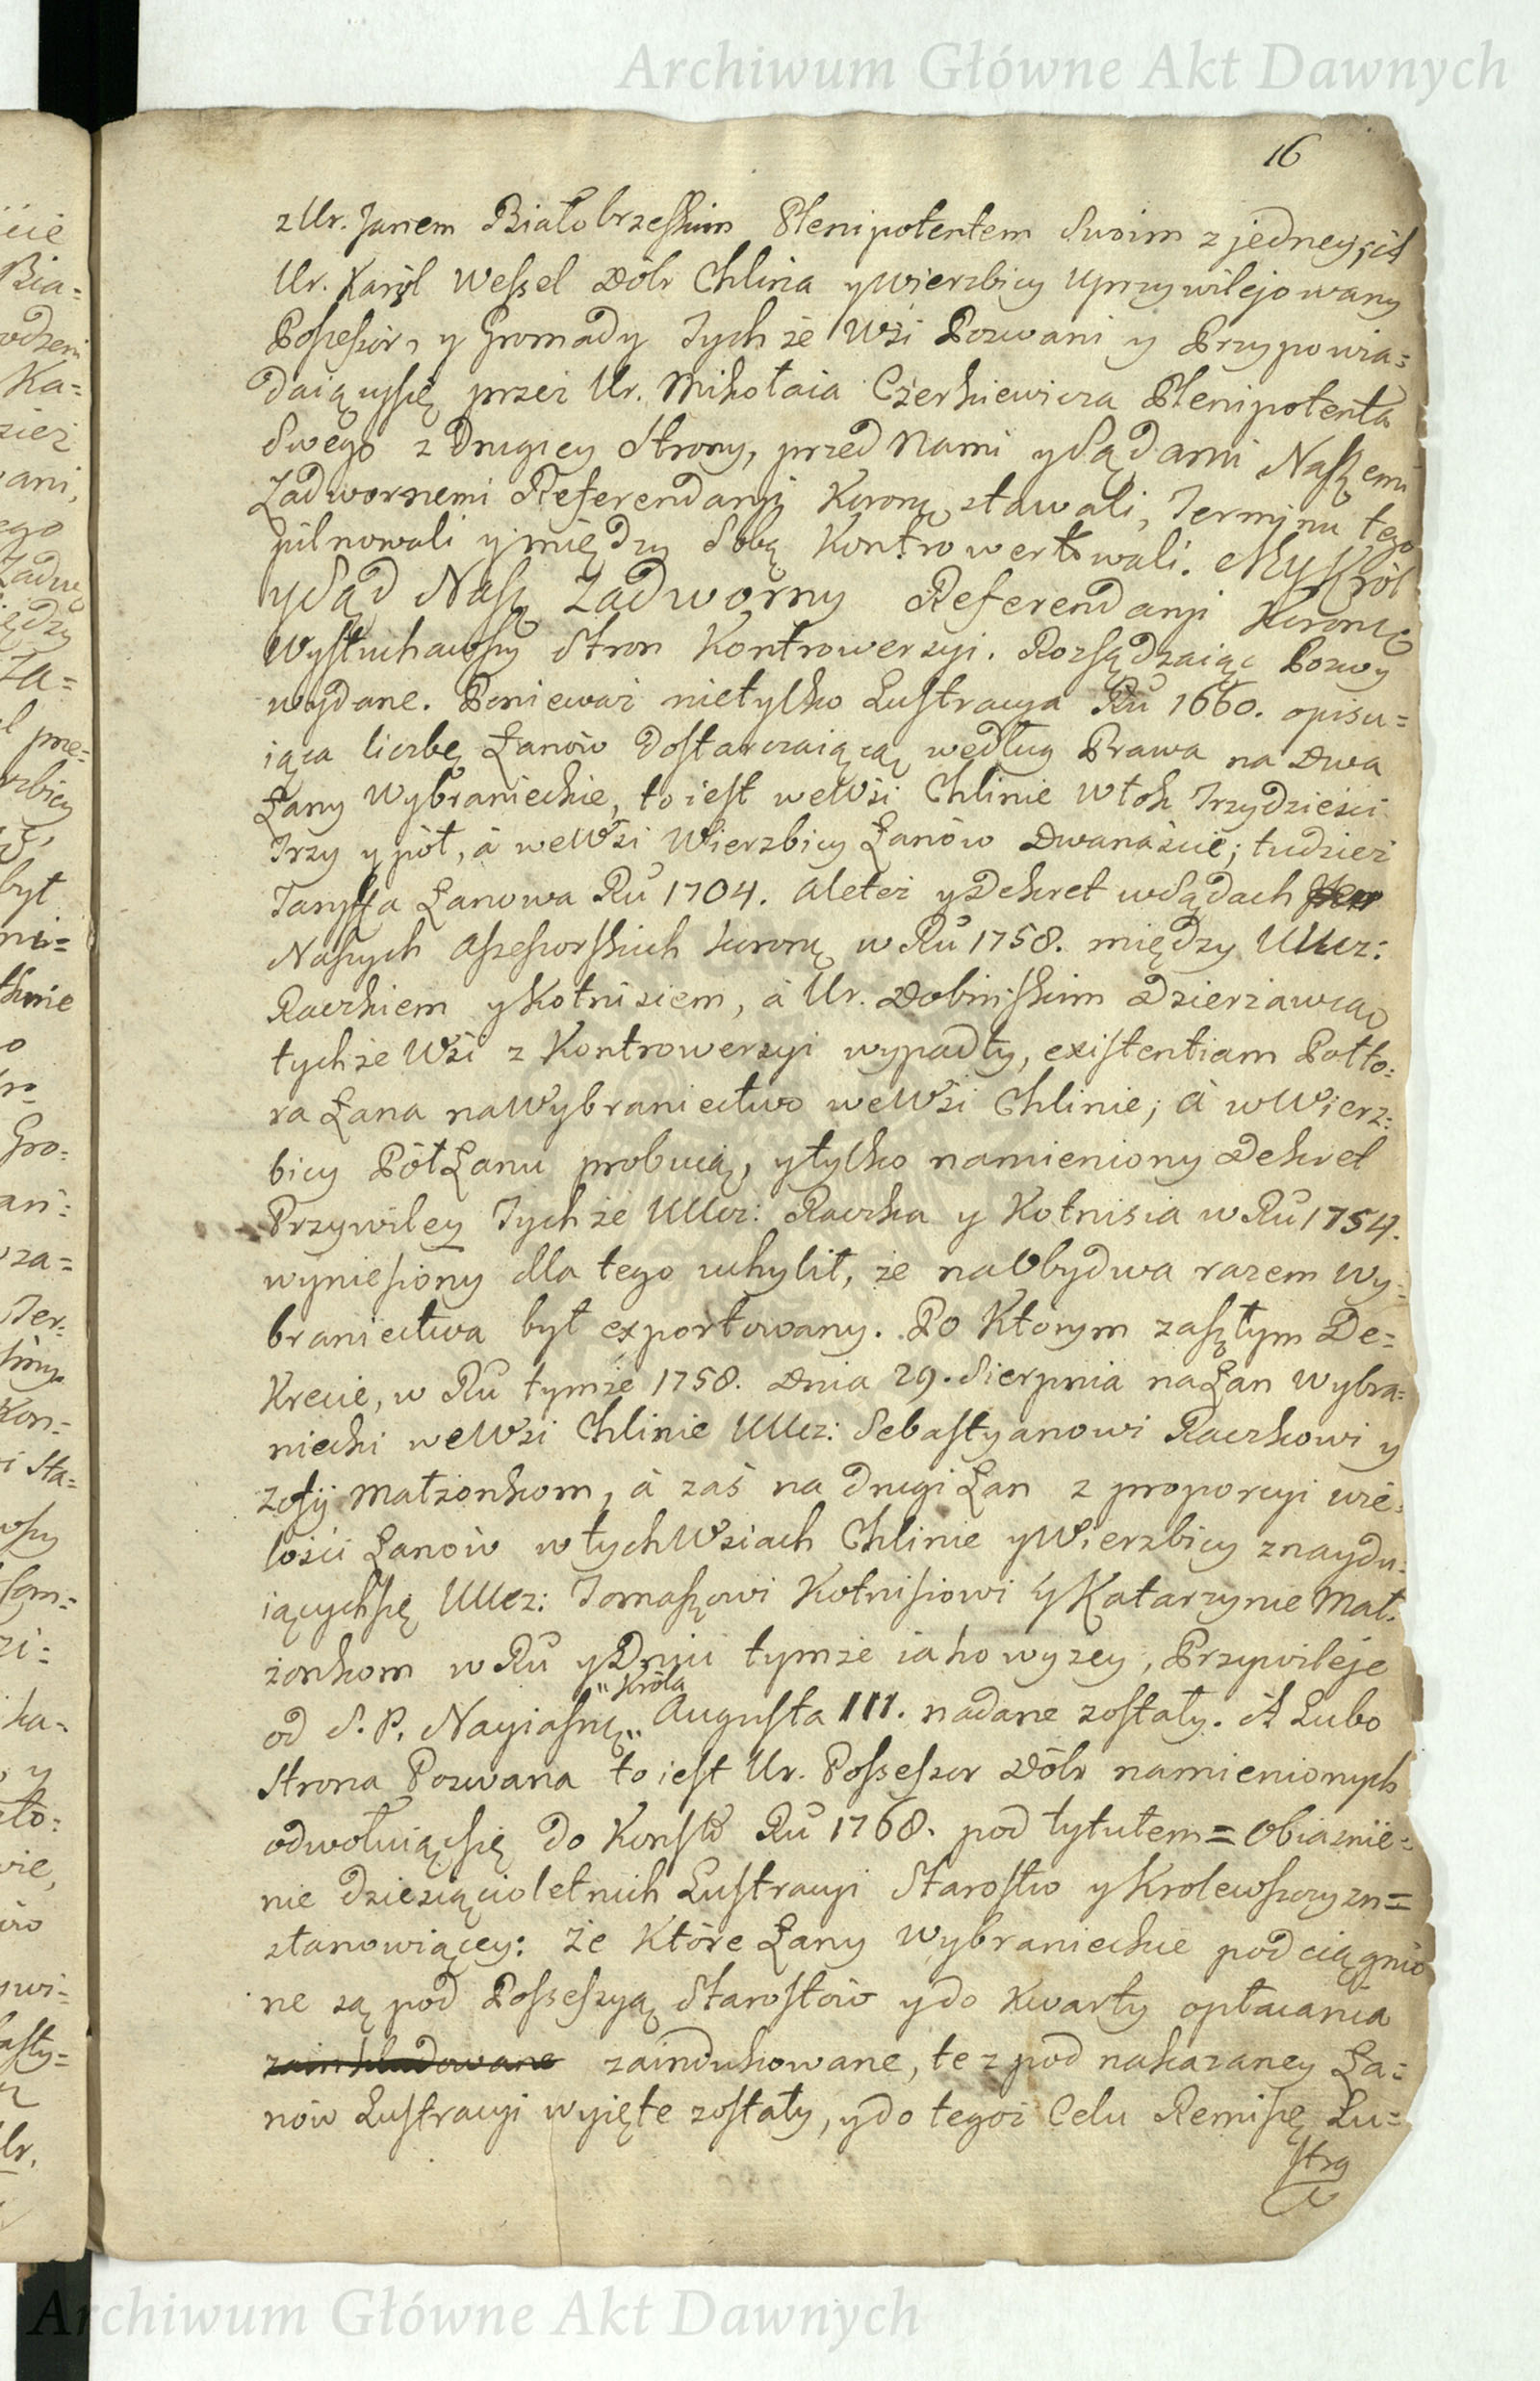 Archiwum Główne Akt Dawnych
16
z Ur. Janem Białobrzeskim Plenipotentem Swoim z jedney, a
Ur. Karól Wessel Dóbr Chlina y Wierzbicy Uprzywilejowany
Possessor, y Gromady Tychże Wśi Pozwani y Przypowia=
daiącysię przez Ur. Mikołaia Czerkiewicza Plenipotenta
Swego z Drugiey Strony, przed Nami y Sądami Naszemi
Zadwornemi Referendaryi Koronę stawali, Terminu tego
pilnowali y między Sobą Kontrowertowali. My Król
y Sąd Nasz Zadworny Referendaryi Koronę
Wysłuchawszy Stron Kontrowersyi. Rozsądzaiąc Pozwy
wydane. Ponieważ nietylko Lustracya Ru 1660. opisu=
iąca liczbę Łanów dostarczaiącą według Prawa na Dwa
Łany Wybranieckie, to iest weWśi Chlinie Włok Trzydzieści
Trzy y pół, á weWśi Wierzbicy Łanów Dwanaście; tudzież
Taryffa Łanowa Ru 1704. aleteż y Dekret w Sądach
Naszych Assessorskich Koronę w Ru 1758. między UUcz:
Raczkiem y Kotnisiem, á Ur. Dobinskim Dzierżawcą
tychże Wśi z Kontrowersyi wypadły, existentiam Połto=
ra Łana na Wybraniectwo weWśi Chlinie; á w Wierz=
bicy Pół Łanu probuią, y tylko namieniony Dekret
Przywiley Tychże UUcz: Raczka y Kotnisia w Ru 1754.
wyniesiony dla tego uchylił, że na Obydwa razem Wy=
braniectwa był exportowany. Po Którym zaszłym De=
krecie, w Ru tymże 1758. Dnia 29. Sierpnia na Łan Wybra=
niecki weWśi Chlinie UUcz: Sebastyanowi Raczkowi y
Zofij Małżonkom, á zaś na drugi Łan z proporcyi wie=
lości Łanów w tych Wśiach Chlinie y Wierzbicy znaydu=
iącychsię UUcz: Tomaszowi Kotnisiowi y Katarzynie Mał=
żonkom w Ru y Dniu tymże iako wyżey, Przywileje
Króla
od S. P. Nayiasnę Augusta III. nadane zostały. A Lubo
Strona Pozwana to iest Ur. Possessor Dóbr namienionych
odwołuiącsię do Konstł Ru 1768. pod tytułem = Obiaśnie=
nie dziesiącioletnich Lustracyi Starostw y Krolewszczyzn=
stanowiącey: że Które Łany Wybranieckie podciągnio
ne są pod Possessyą Starostów y do Kwarty opłacania
zainkludowane zaindukowane, te z pod nakazaney Ła=
nów Lustracyi wyięte zostały, y do tegoż Celu Remissę Lu=
stra
Archiwum Główne Akt Dawnych